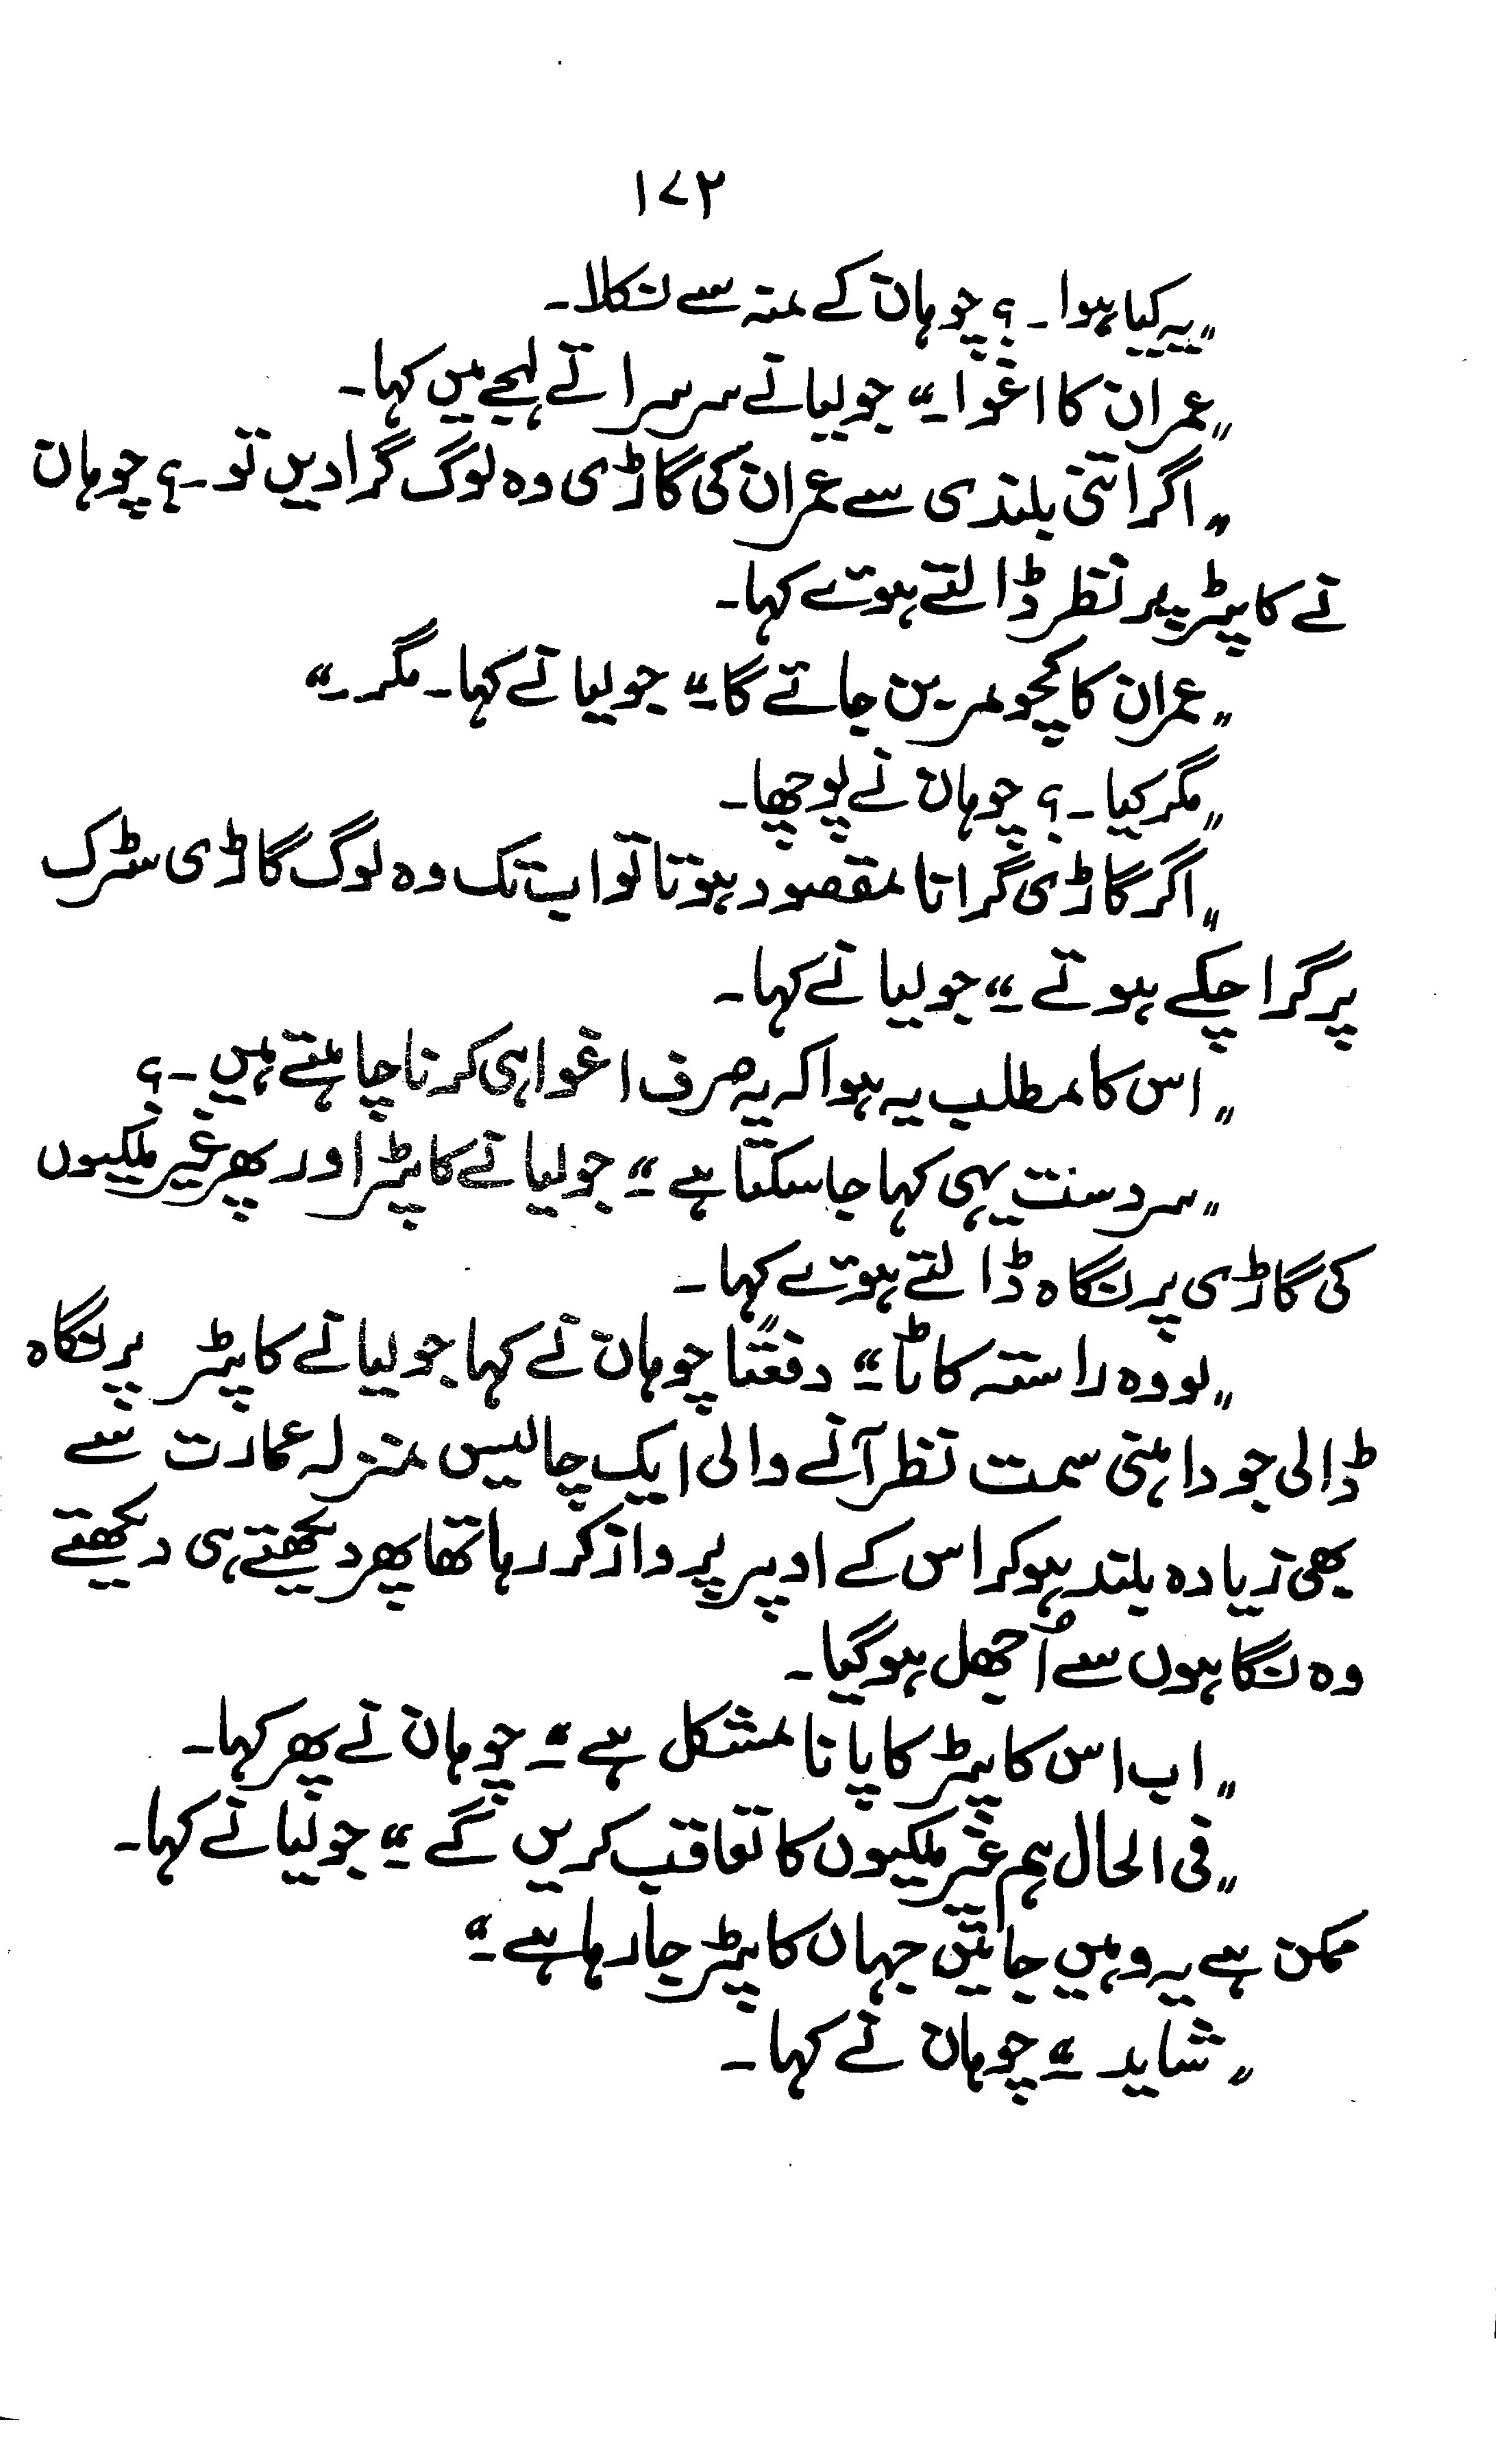 ۱۷۲
"یہ کیا ہوا۔؟ چوہان کے منہ سے نکلا۔
"عمران کا اغوا۔" جولیا نے سرسراتے لہجے میں کہا۔
"اگر اتنی بلندی سے عمران کی گاڑی وہ لوگ گرا دیں تو۔؟ چوہان
نے کاپٹر پر نظر ڈالتے ہوئے کہا۔
"عمران کا کچومر بن جائے گا۔" جولیا نے کہا۔ مگر۔"
"مگر کیا۔؟ چوہان نے پوچھا۔
"اگر گاڑی گرانا مقصود ہوتا تو اب تک وہ لوگ گاڑی سڑک
پر گرا چکے ہوتے۔" جولیا نے کہا۔
"اس کا مطلب یہ ہوا کہ یہ صرف اغوا ہی کرنا چاہتے ہیں۔؟
"سردست یہی کہا جا سکتا ہے۔" جولیا نے کاپٹر اور پھر غیر ملکیوں
کی گاڑی پر نگاہ ڈالتے ہوئے کہا۔
"لو وہ راستہ کاٹا۔" دفعتًا چوہان نے کہا جولیا نے کاپٹر پر نگاہ
ڈالی جو داہنی سمت نظر آنے والی ایک چالیس منزلہ عمارت سے
بھی زیادہ بلند ہو کر اس کے اوپر پرواز کر رہا تھا پھر دیکھتے ہی دیکھتے
وہ نگاہوں سے اُجھل ہو گیا۔
"اب اس کاپٹر کا پانا مشکل ہے۔" چوہان نے پھر کہا۔
"فی الحال ہم غیر ملکیوں کا تعاقب کریں گے۔" جولیا نے کہا۔
ممکن ہے یہ وہیں جائیں جہاں کاپٹر جا رہا ہے۔"
"شاید۔" چوہان نے کہا۔